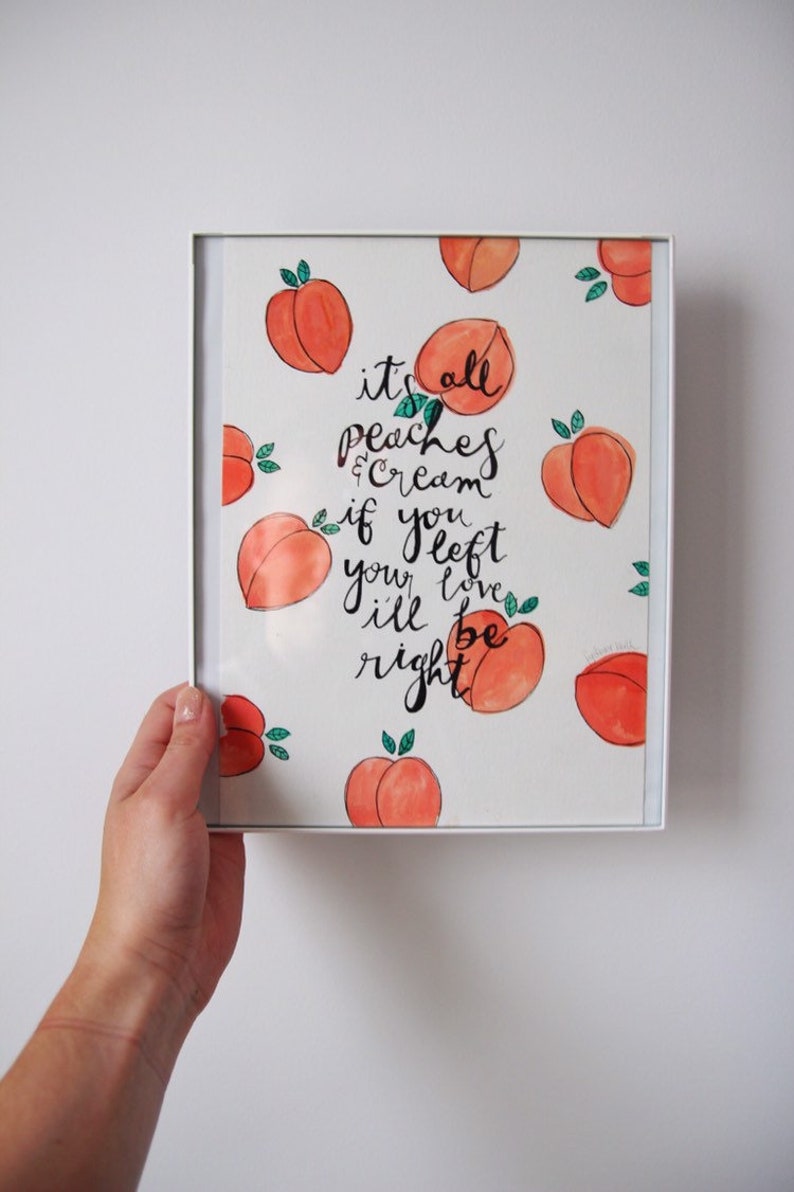 it's all
peaches
& cream
if you
left
your love
i'll be
right